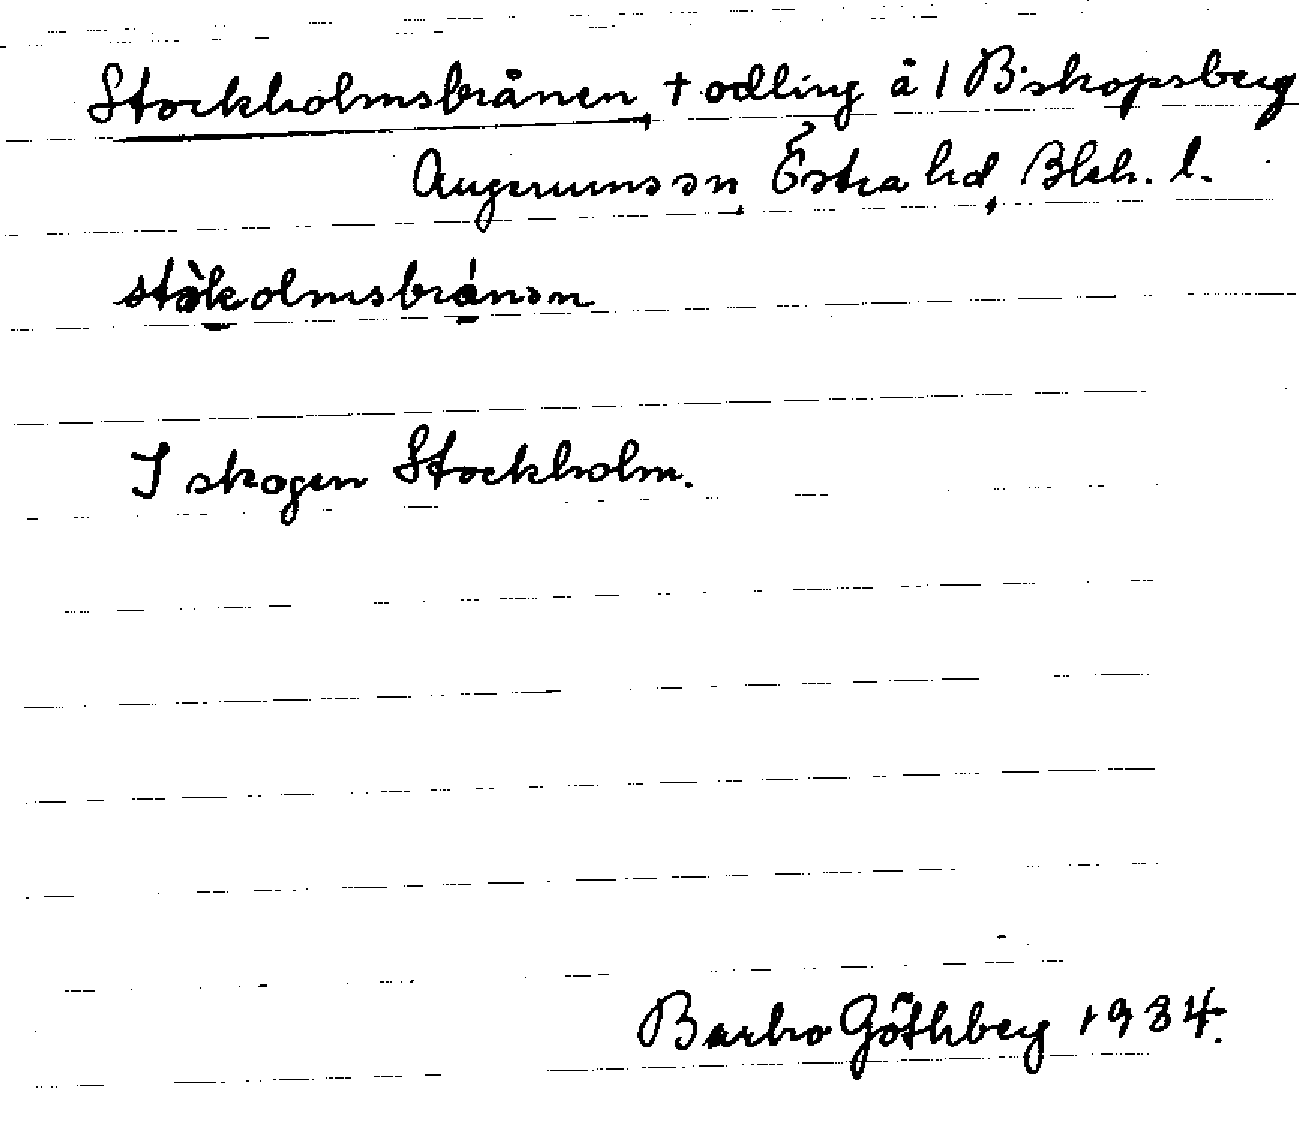 Stockholmsbrånen, + odling å 1 Biskopsberg
Augerums sn, Östra hd, Blek. l.
stòkolmsbránən
I skogen Stockholm.
Barbro Göthberg 1934.